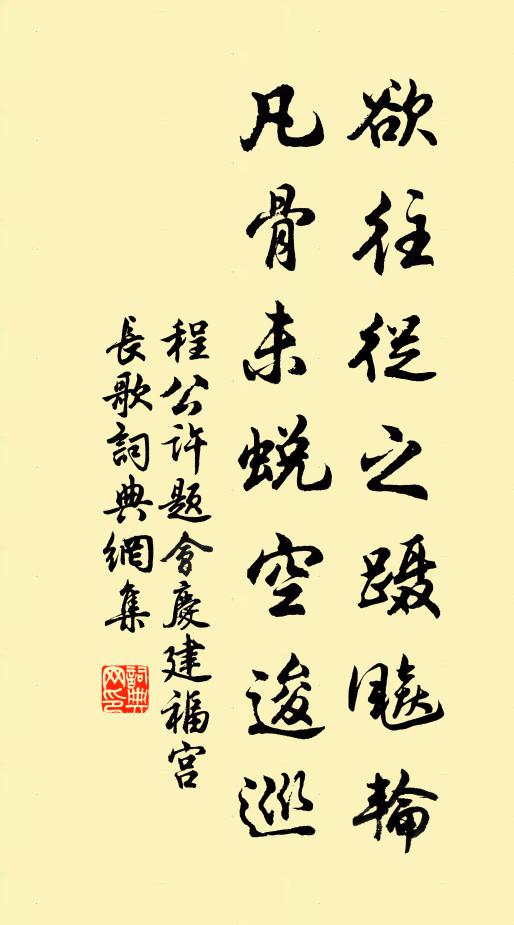 欲往從之躡飈輪
凡骨未蛻空逡巡
程公许题會慶建福宫
長歌詞典網集
詞典网印